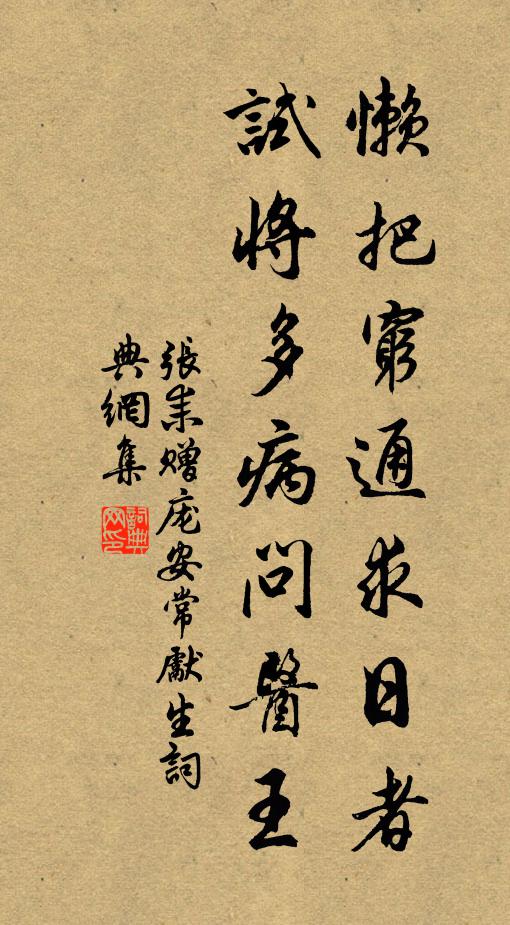 懶把窮通求日者
試將多病問醫王
張耒贈龐安常獻生詞
典網集
詞典網印